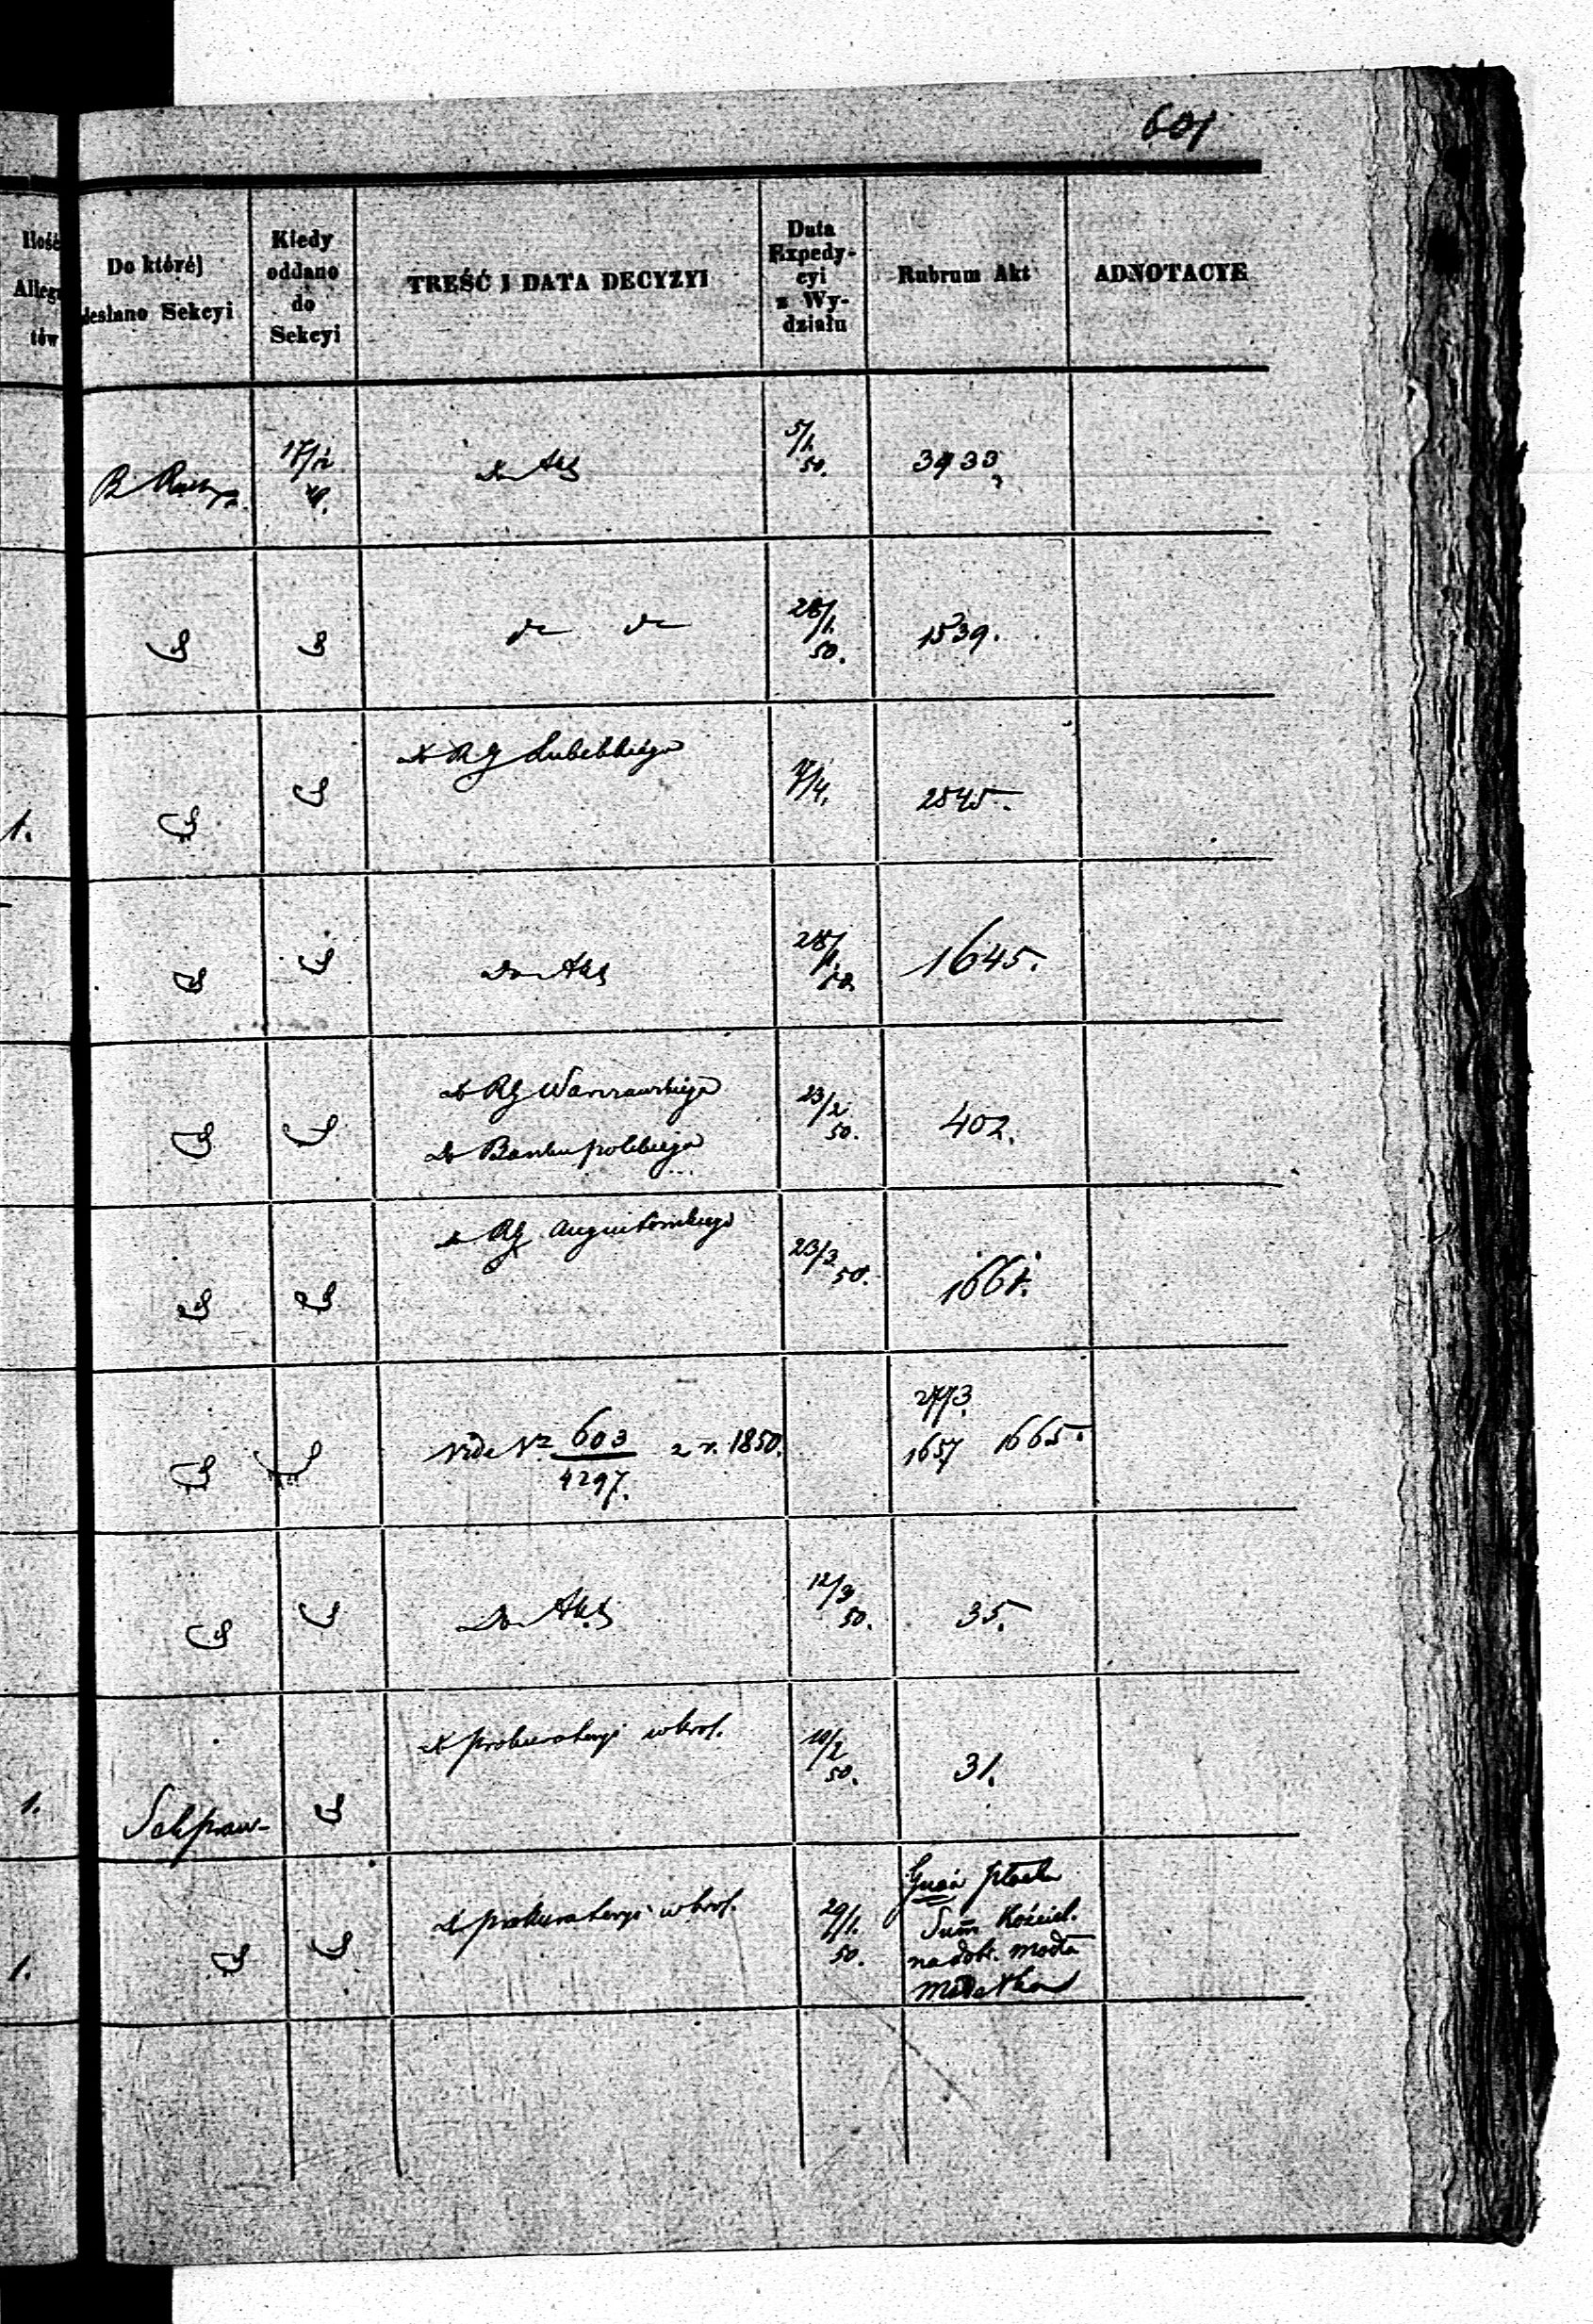 601
Ilość
Alleg
tów
Do któréj
desłano Sekcyi
Kiedy
oddano
do
Sekcyi
TREŚĆ I DATA DECYZYI
Data
Expedy-
cyi
z Wy-
działu
Rubrum Akt
ADNOTACYE
17/12
49.
Do Akt
5/1.
50.
3933
28/1.
50.
1539.
1.
Do RG Lubelskiego
7/4.
2545.
Do Akt
28/1.
50.
1645.
Do RG Warszawskiego
Do Banku polskiego
23/2
50.
402.
Do RG Augustowskiego
23/3
50.
2773.
Vide Nr. 603 z r. 1850.
4297.
1657 1665.
Do Akt
12/3
50.
35.
1.
Do prokuratoryi w król.
10/2
50.
31.
1.
Do prokuratoryi w król.
29/1.
50.
Sum Kościel.
na dobr. Modła